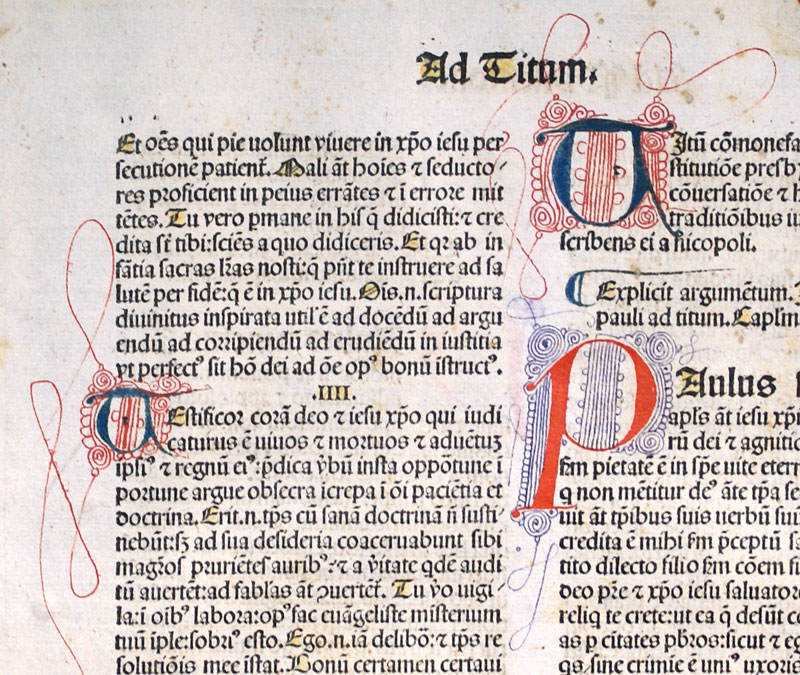 Ad Titum.
Et oēs qui pie uolunt viuere in xp̄o iesu per
secutionē patient̄. Mali āt hoīes ⁊ seducto⸗
res proficient in peius errātes ⁊ ī errore mit
tētes. Tu vero ꝑmane in his q̄ didicisti: ⁊ cre
dita st̄ tibi: sciēs a quo didiceris. Et qꝛ ab in
fātia sacras lr̄as nosti: q̄ pn̄t te instruere ad sa
lutē per fidē: q̄ ē in xp̄o iesu. Oīs .n. scriptura
diuinitus inspirata util̄ ē ad docēdū ad argu
endū ad corripiendū ad erudiēdū in iustitia
vt perfectꝰ sit hō dei ad ōe opꝰ bonū īstructꝰ.
.IIII.
TEstificor corā deo ⁊ iesu xp̄o qui iudi
caturus ē uiuos ⁊ mortuos ⁊ aduētuꝫ
ipsiꝰ ⁊ regnū eiꝰ: p̄dica v̄bū insta oppōtune ī
portune argue obsecra īcrepa ī ōī paciētia et
doctrina. Erit .n. tp̄s cū sanā doctrinā n̄ susti⸗
nebūt: sꝫ ad sua desideria coaceruabunt sibi
magr̄os pruriētes auribꝰ: ⁊ a v̄itate qdē audi
tū auertēt: ad fabl̄as āt ꝯuertēt̄. Tu v̄o uigi⸗
la: ī oibꝰ labora: opꝰ fac euāgeliste misterium
tuū īple: sobriꝰ esto. Ego .n. iā delibōꝛ: ⁊ tp̄s re
solutiōis mee īstat. Bonū certamen certaui
TItū cōmonefa
stitutiōe presb
cōuersatiōe ⁊ h
traditiōibus iu
scribens ei a nicopoli.
Explicit argumētum. I
pauli ad titum. Capl̄m
PAulus s
apl̄s āt iesu xp̄i
rū dei ⁊ agnitio
ſm pietatē ē in sp̄e uite etern
q non mētitur deꝰ āte tp̄a se
uit āt tp̄ibus suis uerbū suū
credita ē mihi ſm p̄ceptū sa
tito dilecto filio ſm cōem fi
deo pr̄e ⁊ xp̄o iesu saluatore
reliq te crete: ut ea q̄ desūt co
as p cītates pb̄ros: sicut ⁊ eg
qs sine crimīe ē uniꝰ uxoris